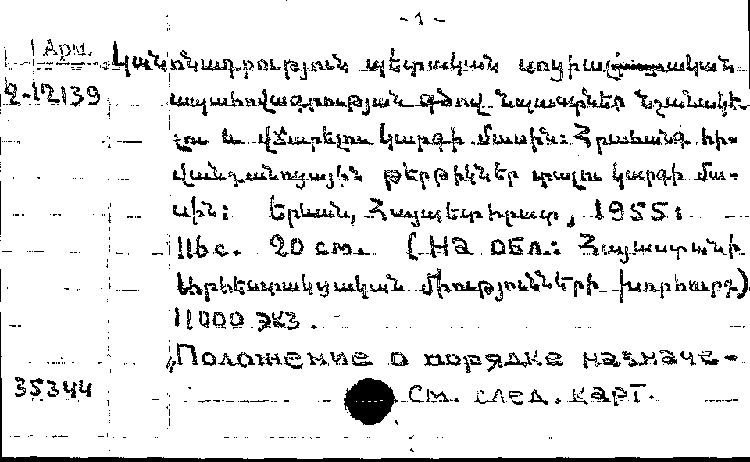 -1-
Арм. Կանոնադրություն պետական սոցիալական
2-12139 ապահովագրության գծով նպաստներ նշանակե-
լու և վճարելու կարգի մասին: Հրահանգ հի-
վանդանոցային թերթիկներ տալու կարգի մա-
սին: Երևան, Հայպետհրատ, 1955:
116 с. 20 см. (На обл.: Հայաստանի
Արհեստակցական միությունների խորհուրդ)
11000 экз.
„Положение о порядке назначе-
35344 См. след. карт.